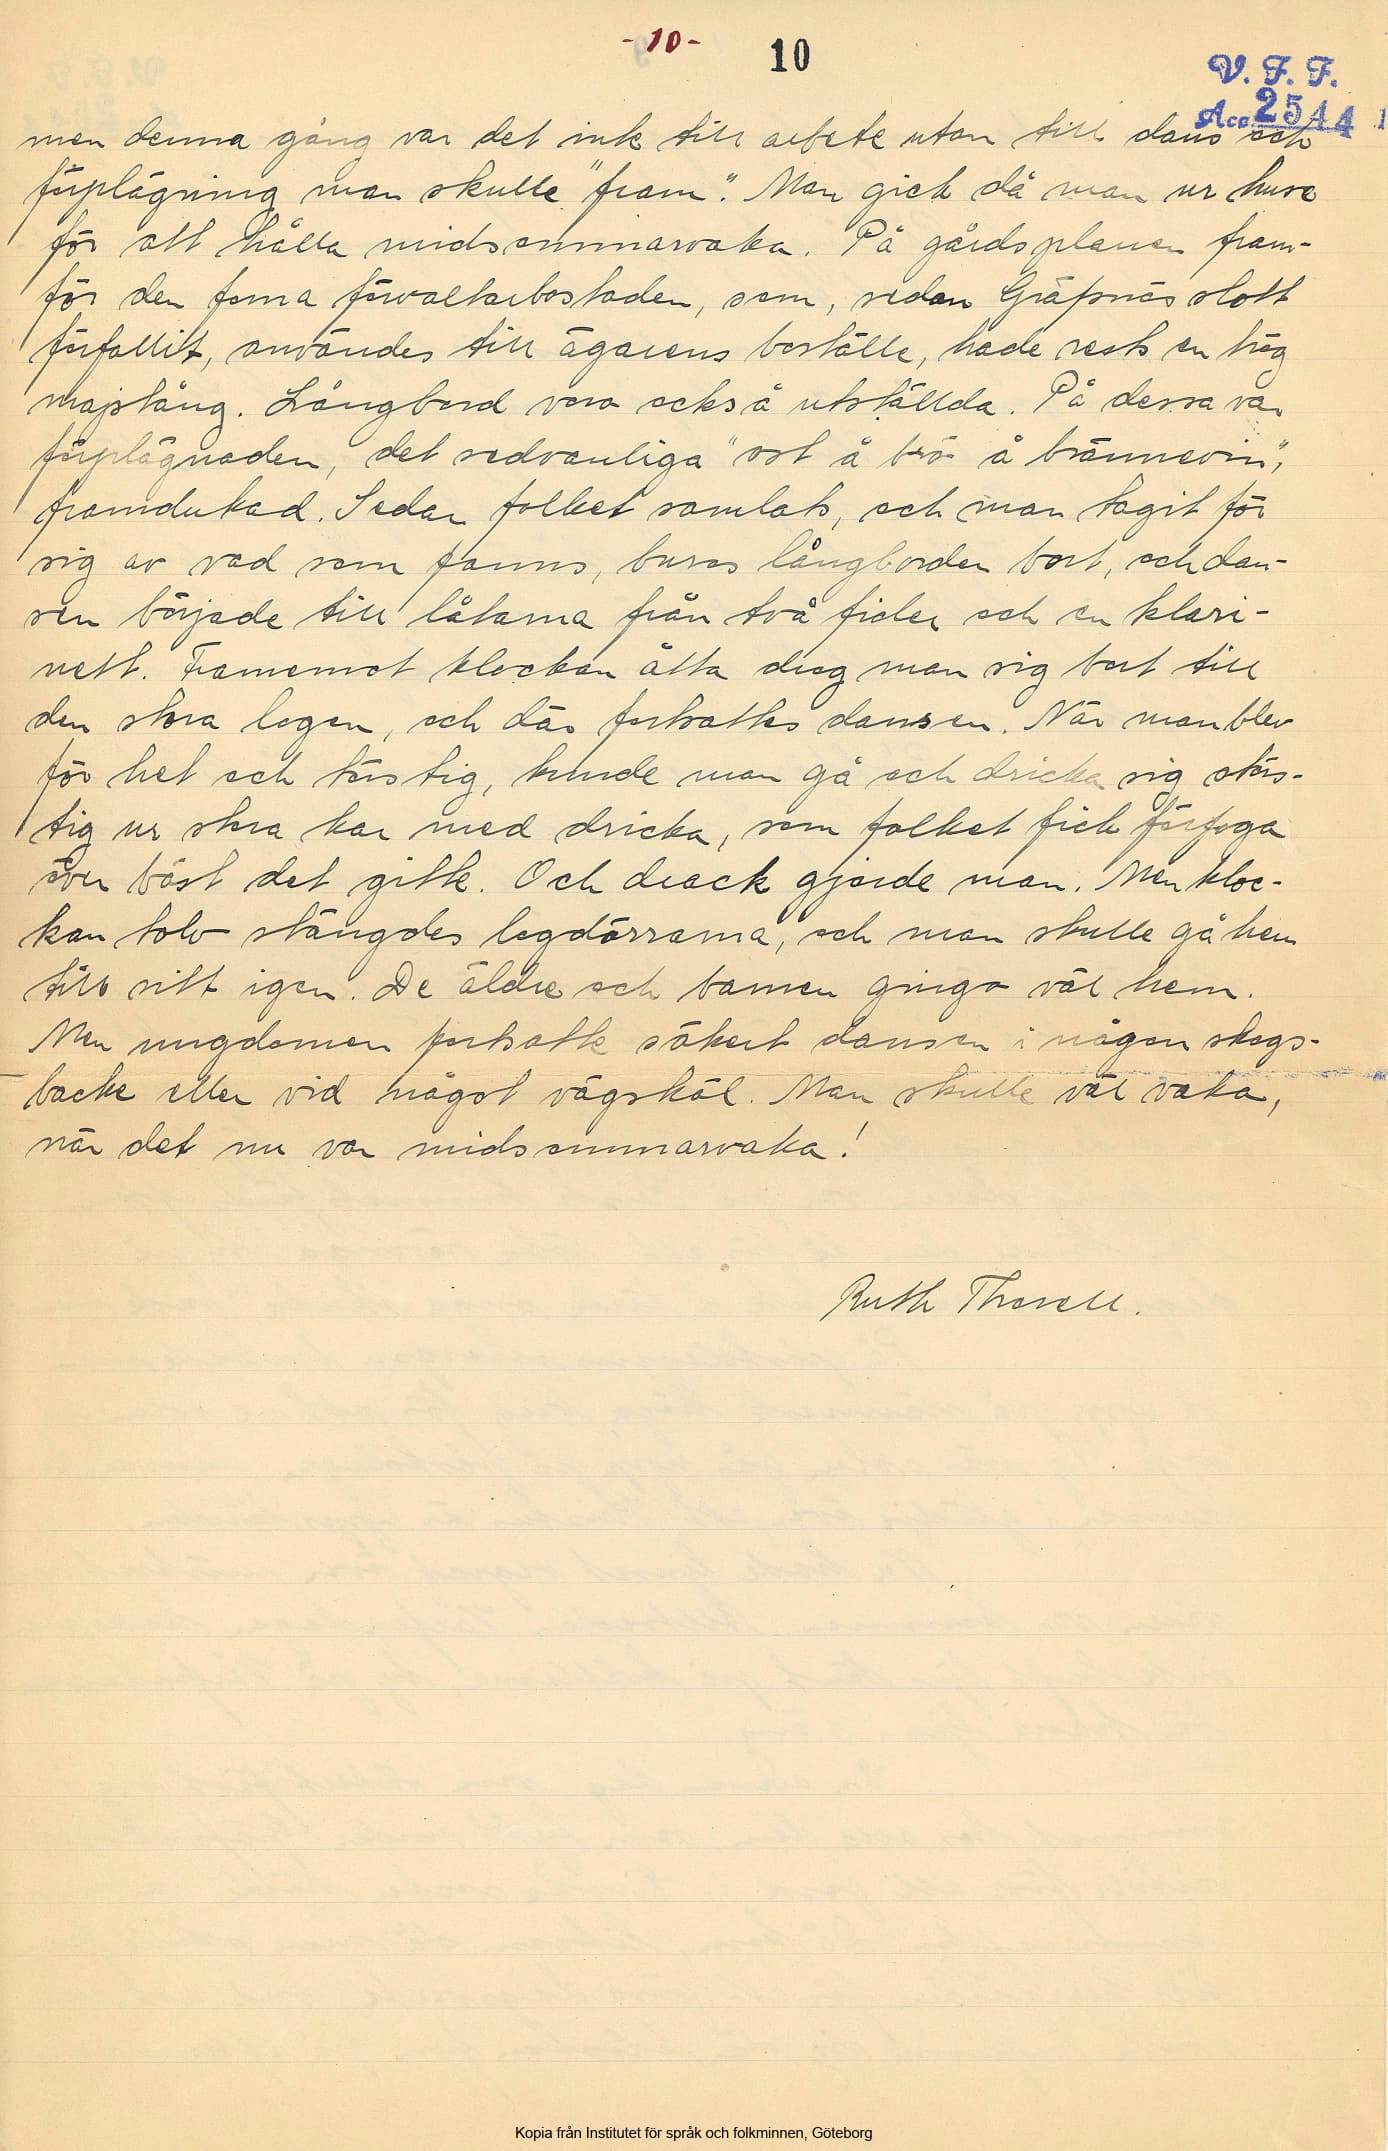 -10- 10
V. F. F.
Acc 2544 1
men denna gång var det inte till arbete utan till dans och
förplägning man skulle "fram". Man gick då man ur huse
för att hålla midsommarvaka. På gårdsplanen fram-
för den forna förvaltarbostaden, som, sedan Gräfsnäs slott
förfallit, användes till ägarens boställe, hade rests en hög
majstång. Långbord voro också utställda. På dessa var
förplägnaden, det sedvanliga "ost å brö å brännevin",
framdukad. Sedan folket samlats, och man tagit för
sig av vad som fanns, buros långborden bort, och dan-
sen började till låtarna från två fioler och en klari-
nett. Framemot klockan åtta drog man sig bort till
den stora logen, och där fortsattes dansen. När man blev
för het och törstig, kunde man gå och dricka sig otörs-
tig ur stora kar med dricka, som folket fick förfoga
över bäst det gitte. Och drack gjorde man. Men kloc-
kan tolv stängdes logdörrarna, och man skulle gå hem
till sitt igen. De äldre och barnen gingo väl hem.
Men ungdomen fortsatte säkert dansen i någon skogs-
backe eller vid något vägskäl. Man skulle väl vaka,
när det nu var midsommarvaka!
Ruth Thorell.
Kopia från Institutet för språk och folkminnen, Göteborg